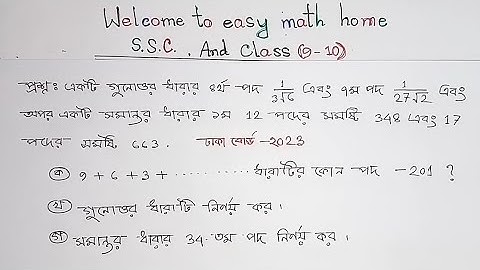 Welcome to easy math home
S.S.C. And Class (9-10)
প্রশ্ন : একটি গুনোত্তর ধারার ৪র্থ পদ 1/3√6 এবং ৭ম পদ 1/27√2 এবং
অপর একটি সমান্তর ধারার ১ম 12 পদের সমষ্টি 348 এবং 17
পদের সমষ্টি 663. ঢাকা বোর্ড -2023
ক) 9 + 6 + 3 + ........... ধারাটির কোন পদ -201 ?
খ) গুনোত্তর ধারাটি নির্ণয় কর।
গ) সমান্তর ধারার 34 তম পদ নির্ণয় কর।